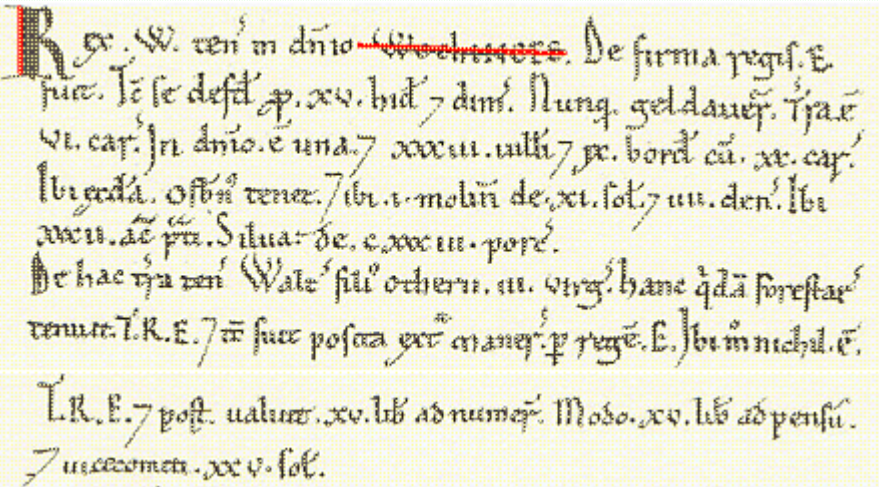 Rex . W. ten̄ in dn̄io Wochinges. De firma regis. E.
fuit. Tc̄ se defd̄ ꝓ. xv. hid̄ ⁊ dim̄. Nunq. geldauer̄. T̄ra. ē
vi. car̄. In dn̄io. ē una. ⁊ xxxiii. uilli ⁊ ix. bord̄ cū. xx. car̄.
Ibi æccła. Osbn̄ tenet. ⁊ ibi. i. molin̄ de. xi. sol̄. ⁊ iiii. den̄. Ibi
xxxii. ac̄ p̄ti. Silua: de. c.xxxiii. porc̄.
De hac t̄ra ten̄ Walt̄ filiꝰ otherii. iii. virḡ. hanc q̄dā forestar̄
tenuit. T.R.E. ⁊ tc̄ fuit posita ext̄ maner̄. ꝑ regē. E. Ibi m̊ nichil. ē.
T.R.E. ⁊ post. ualuit. xv. lib̄ ad numer̄. Modo. xv. lib̄ ad pensū.
⁊ uicecomiti. xxv. sol̄.